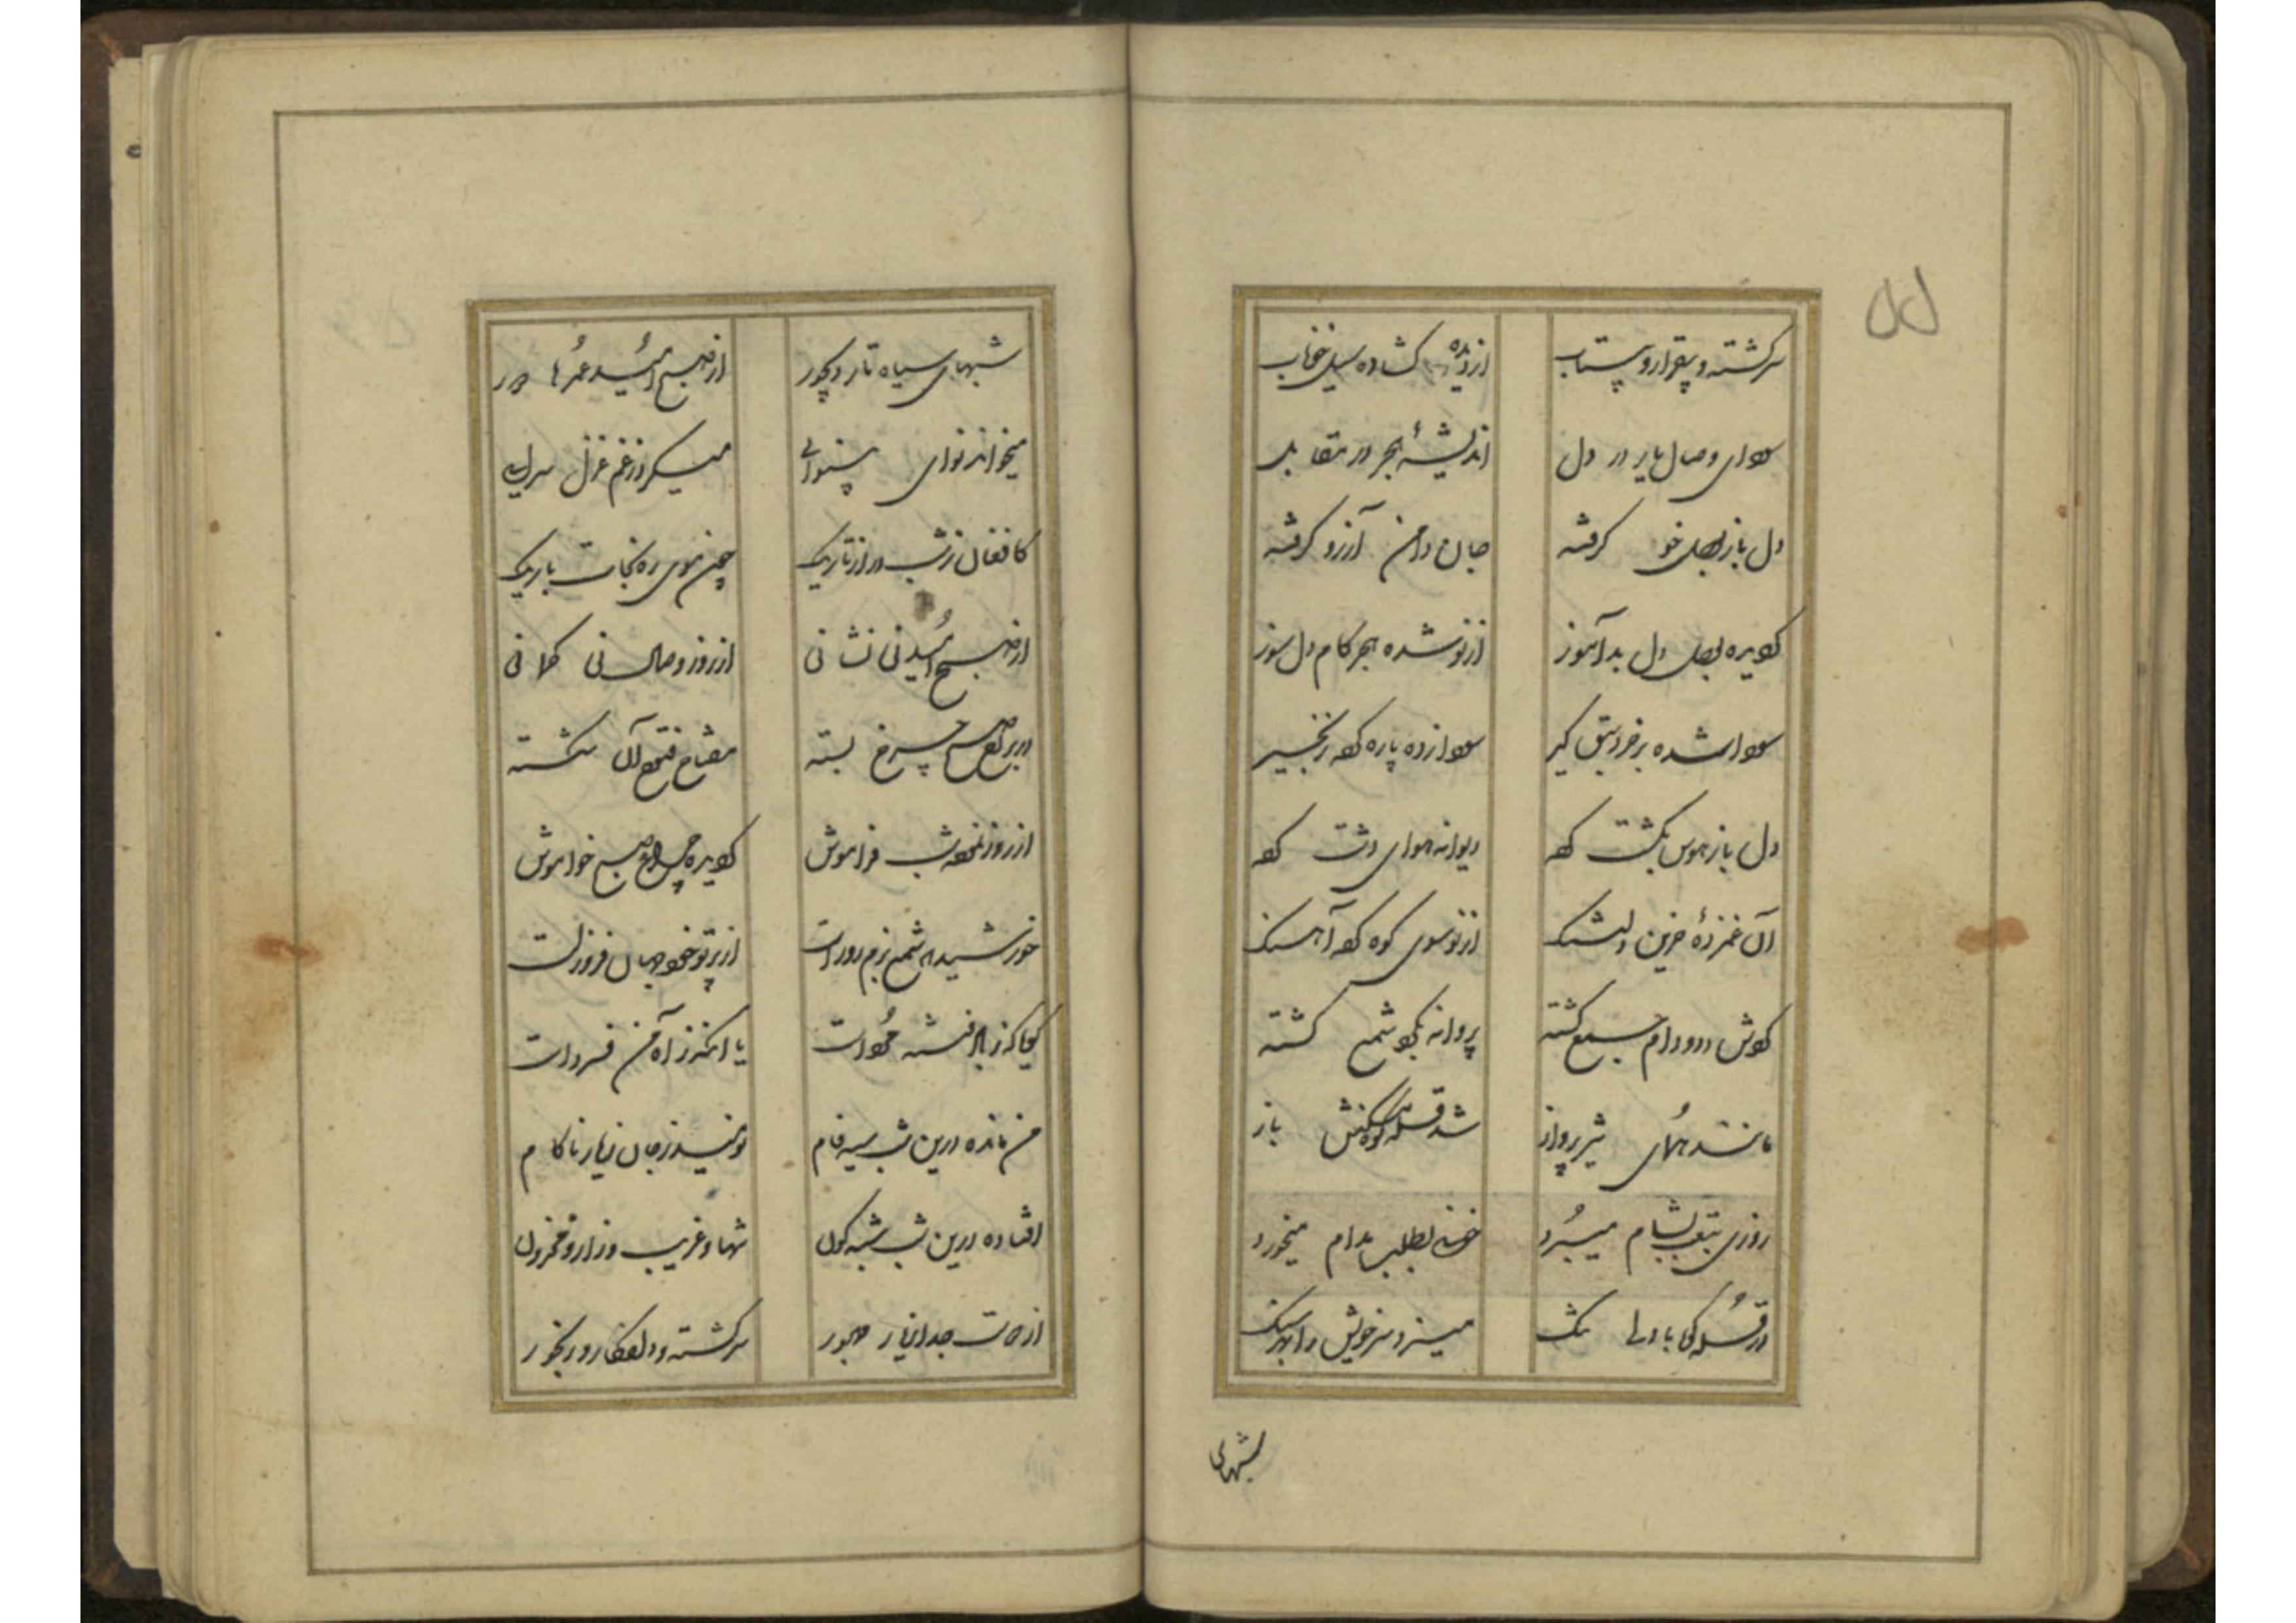 سرگشته و بیقرار و بیتاب از دیده گشاده سیل خوناب
سودای وصال یار در دل اندیشهٔ هجر در مقابل
دل باز بوصل خو گرفته جان دامن آرزو گرفته
کرده بوصل دل بدآموز از نو شده هجر کام دل سوز
سودا شده بر خرد سبق گیر سودا زده پاره کرده زنجیر
دل باز هوس بگشت کرده دیوانه هوای دشت کرده
آن غمزدهٔ حزین دلتنگ از نو سوی کوه کرد آهنگ
در دام گشته پروانه بگرد شمع گشته
مانند همای تیز پرواز شد قله کوه باز
روزی بتعب بشام میبرد خونی بطلب مدام میخورد
در قله کوه با دلی تنگ میزد سر خویش را بهر سنگ
شبهای
شبهای سیاه تار دیجور از صبح امید عمرها دور
میخواند نوای بینوایی میکرد ز غم غزل سرایی
کافغان ز شب دراز تاریک چون موی ره نجات باریک
از صبح امید نی نشانی از روز وصال نی گمانی
در بر رخ صبح چرخ بسته مفتاح فتوح آن شکسته
از روز نموده شب فراموش کرده چراغ صبح خاموش
خورشید که شمع بزم دور است از پرتو خود جهان فروز است
گویا که ز باد فتنه مرده است یا آنکه ز آه من فسرده است
من مانده درین شب سیه فام نومید ز جان ز یار ناکام
افتاده درین شب شبه گون تنها و غریب و زار و محزون
از جانب جدا ز یار مهجور سرگشته و دلفگار و رنجور